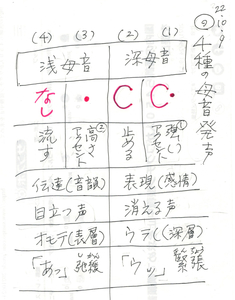 22.10.9
② 4種の母音発声
(4) (3) (2) (1)
浅母音 深母音
なし ・ C C・
流す 高さアクセント② 止める 強いアクセント①
伝達(音韻) 表現(感情)
目立つ声 消える声
オモテ(表層) ウラ(深層)
「あっ」弛緩 「ウッ」緊張
しかん きんちょう